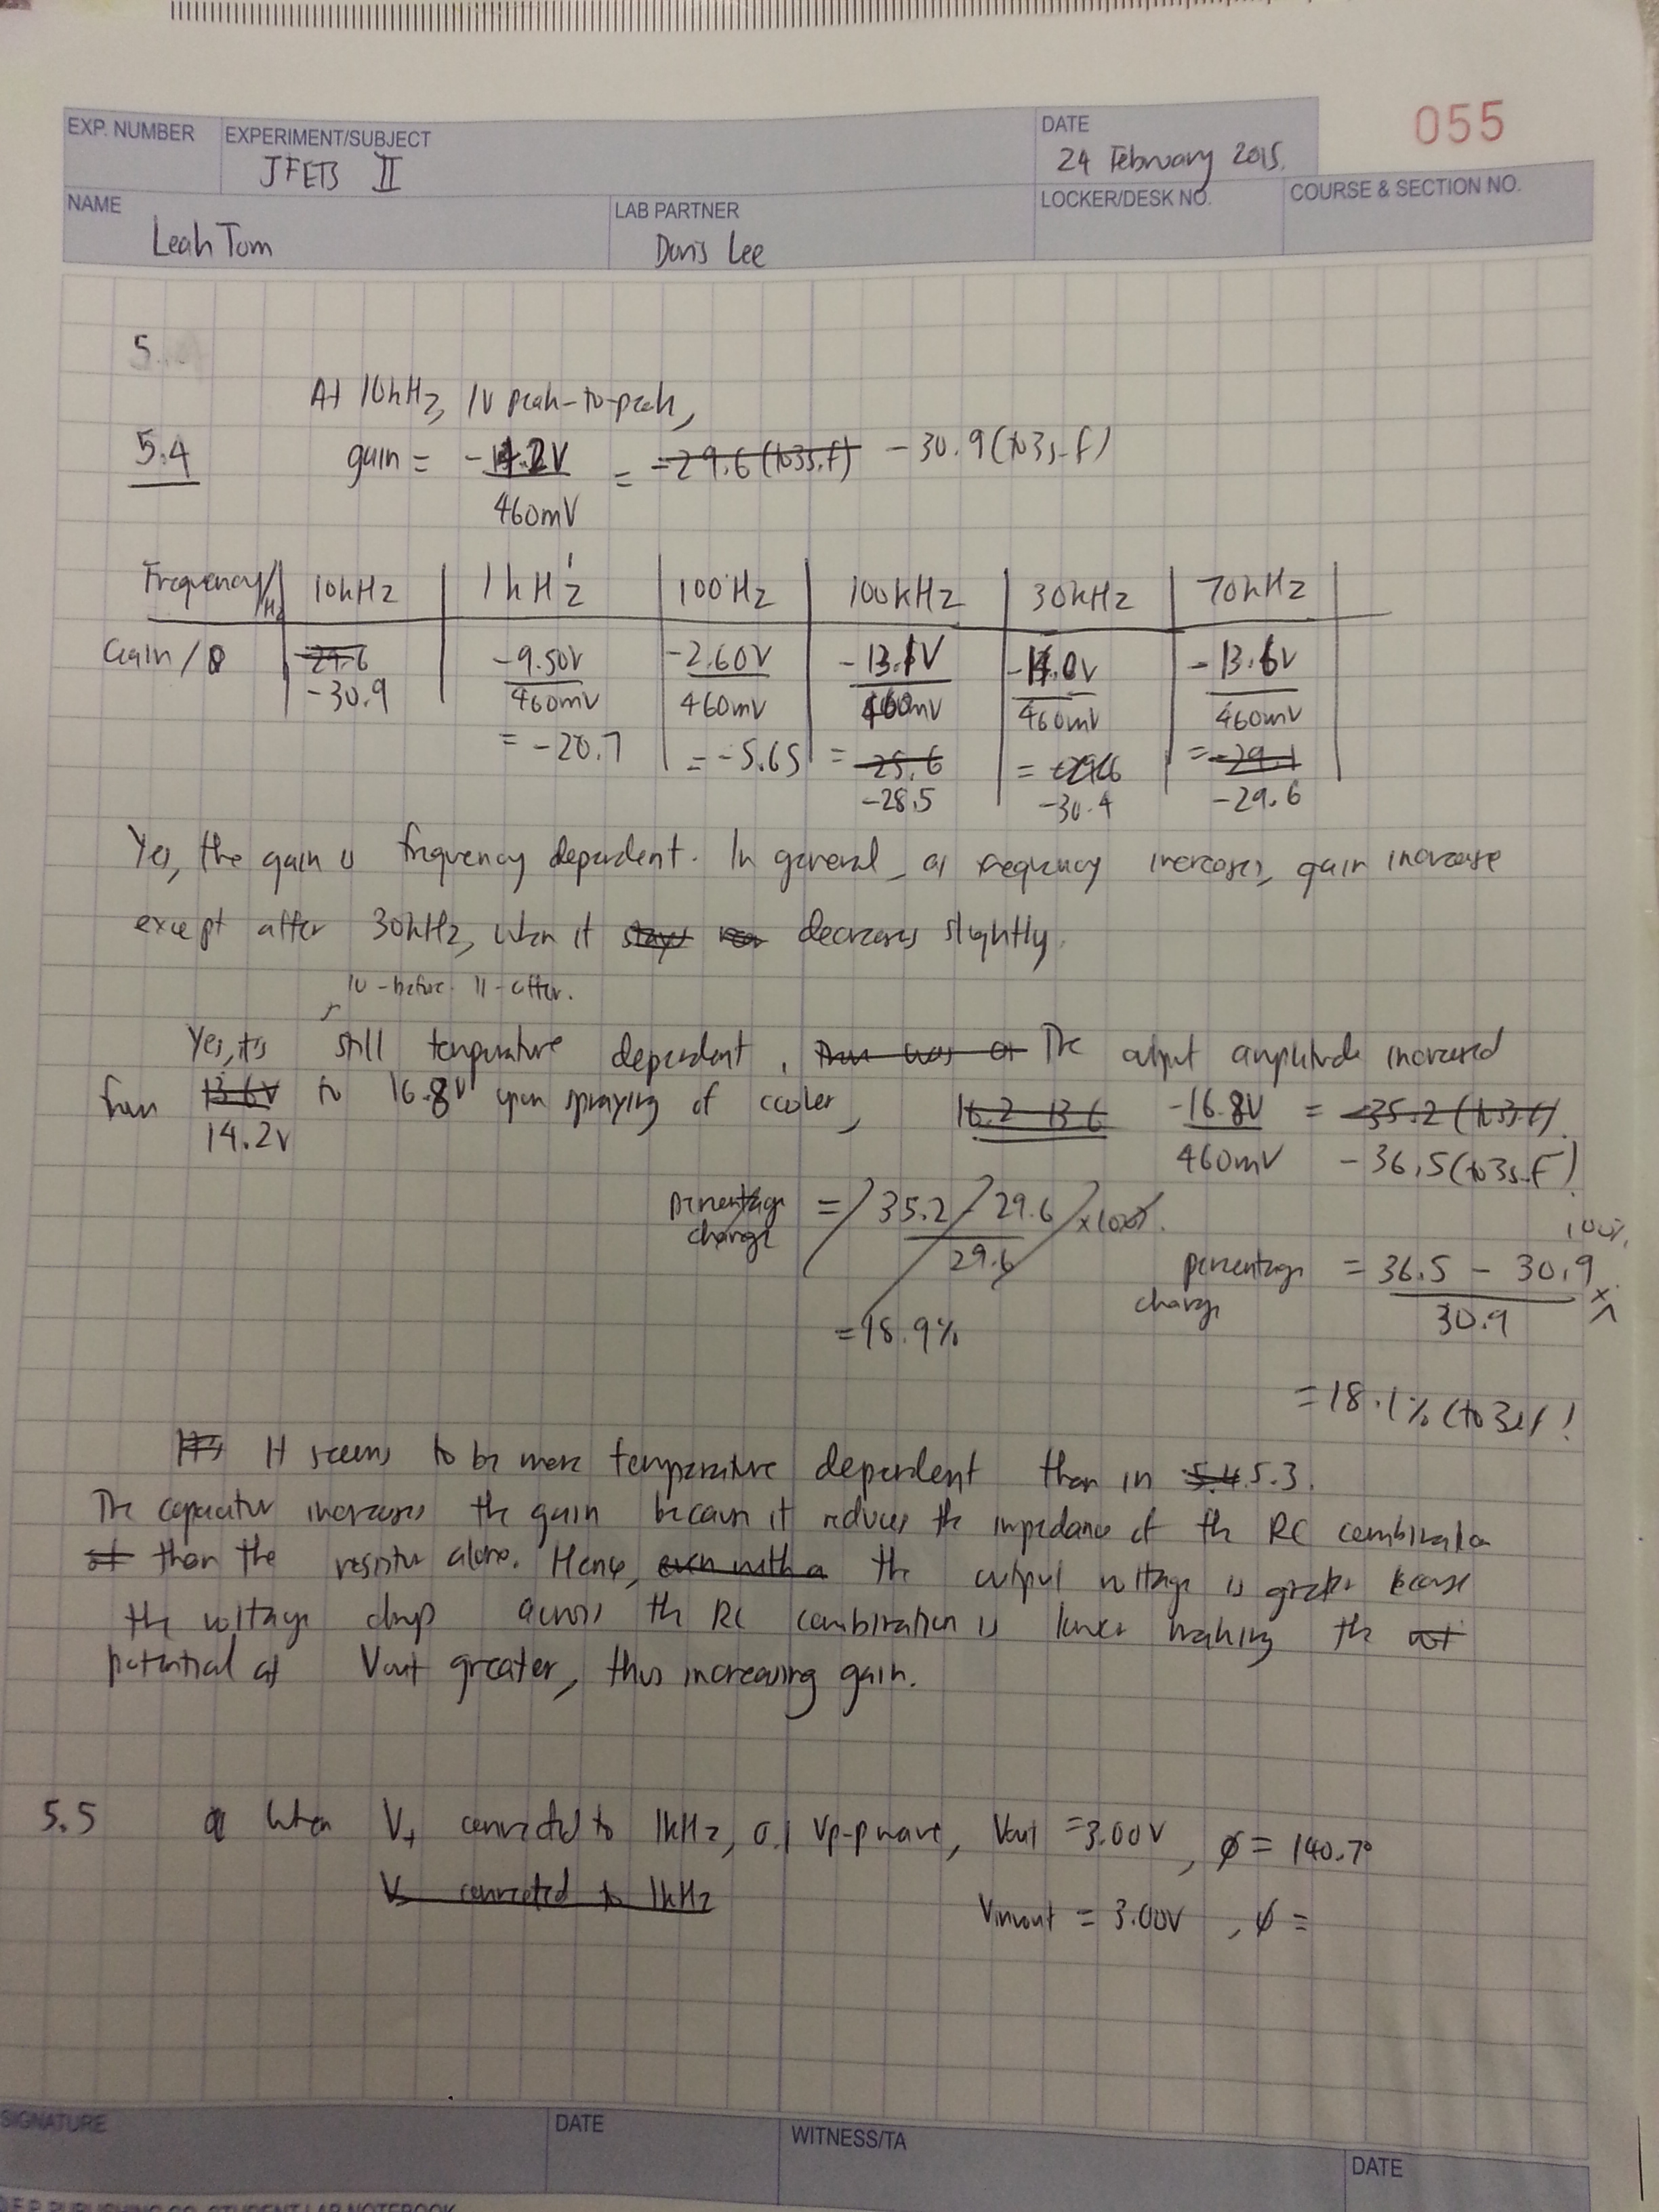 055
EXP. NUMBER EXPERIMENT/SUBJECT DATE
JFETs II 24 February 2015.
NAME LAB PARTNER LOCKER/DESK NO. COURSE & SECTION NO.
Leah Tom Doris Lee
5.
At 10kHz, 1V peak-to-peak,
5.4 gain = -14.2V / 460mV = -29.6 (to3s.f) -30.9 (to3s.f)
Frequency/Hz 10kHz 1kHz 100Hz 100kHz 30kHz 70kHz
Gain / -29.6 -9.50V -2.60V -13.1V -14.0V -13.6V
-30.9 460mV 460mV 460mV 460mV 460mV
= -20.7 = -5.65 = -25.6 = = -29.1
-28.5 -30.4 -29.6
Yes, the gain is frequency dependent. In general, as frequency increases, gain increase
except after 30kHz, when it stays decreases slightly.
10 - before 11 - after.
Yes, it's still temperature dependent. There was The output amplitude increased
from 13.6V to 16.8V upon spraying of cooler, 16.2-13.6 -16.8V = -35.2 (to3s.f).
14.2V 460mV -36.5 (to3s.f)
percentage change = 35.2 - 29.6 / 29.6 x100%.
= 18.9%
percentage change = 36.5 - 30.9 / 30.9 x 100%
= 18.1% (to3sf)
It's It seems to be more temperature dependent than in 5.4 5.3.
The capacitor increases the gain because it reduces the impedance of the RC combination
of than the resistor alone. Hence, even with a the output voltage is greater because
the voltage drop across the RC combination is lower making the
potential at Vout greater, thus increasing gain.
5.5 When V+ connected to 1kHz, 0.1 Vp-p wave, Vout = 3.00V, φ = 140.7°
V- connected to 1kHz
Vinvout = 3.00V, φ =
SIGNATURE DATE WITNESS/TA DATE
PUBLISHING CO. STUDENT LAB NOTEBOOK